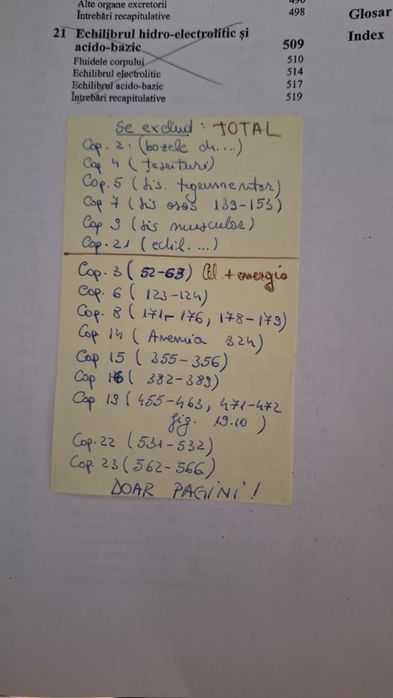 Alte organe excretorii 496
Întrebări recapitulative 498
Glosar
21 Echilibrul hidro-electrolitic și
acido-bazic 509
Index
Fluidele corpului 510
Echilibrul electrolitic 514
Echilibrul acido-bazic 517
Întrebări recapitulative 519
Se exclud : TOTAL
Cap. 2 (bazele ch....)
Cap 4 (țesuturi)
Cap. 5 (sis. tegumentar)
Cap 7 (sis osos 139-153)
Cap 9 (sis muscular)
Cap. 21 (echil. ...)
Cap. 3 (52-63) Cel + energia
Cap. 6 (123-124)
Cap. 8 (171-176, 178-179)
Cap 14 (Anemia 324)
Cap 15 (355-356)
Cap 16 (382-389)
Cap 19 (455-463, 471-472
fig. 19.10)
Cap. 22 (531-532)
Cap. 23 (562-566)
DOAR PAGINI !